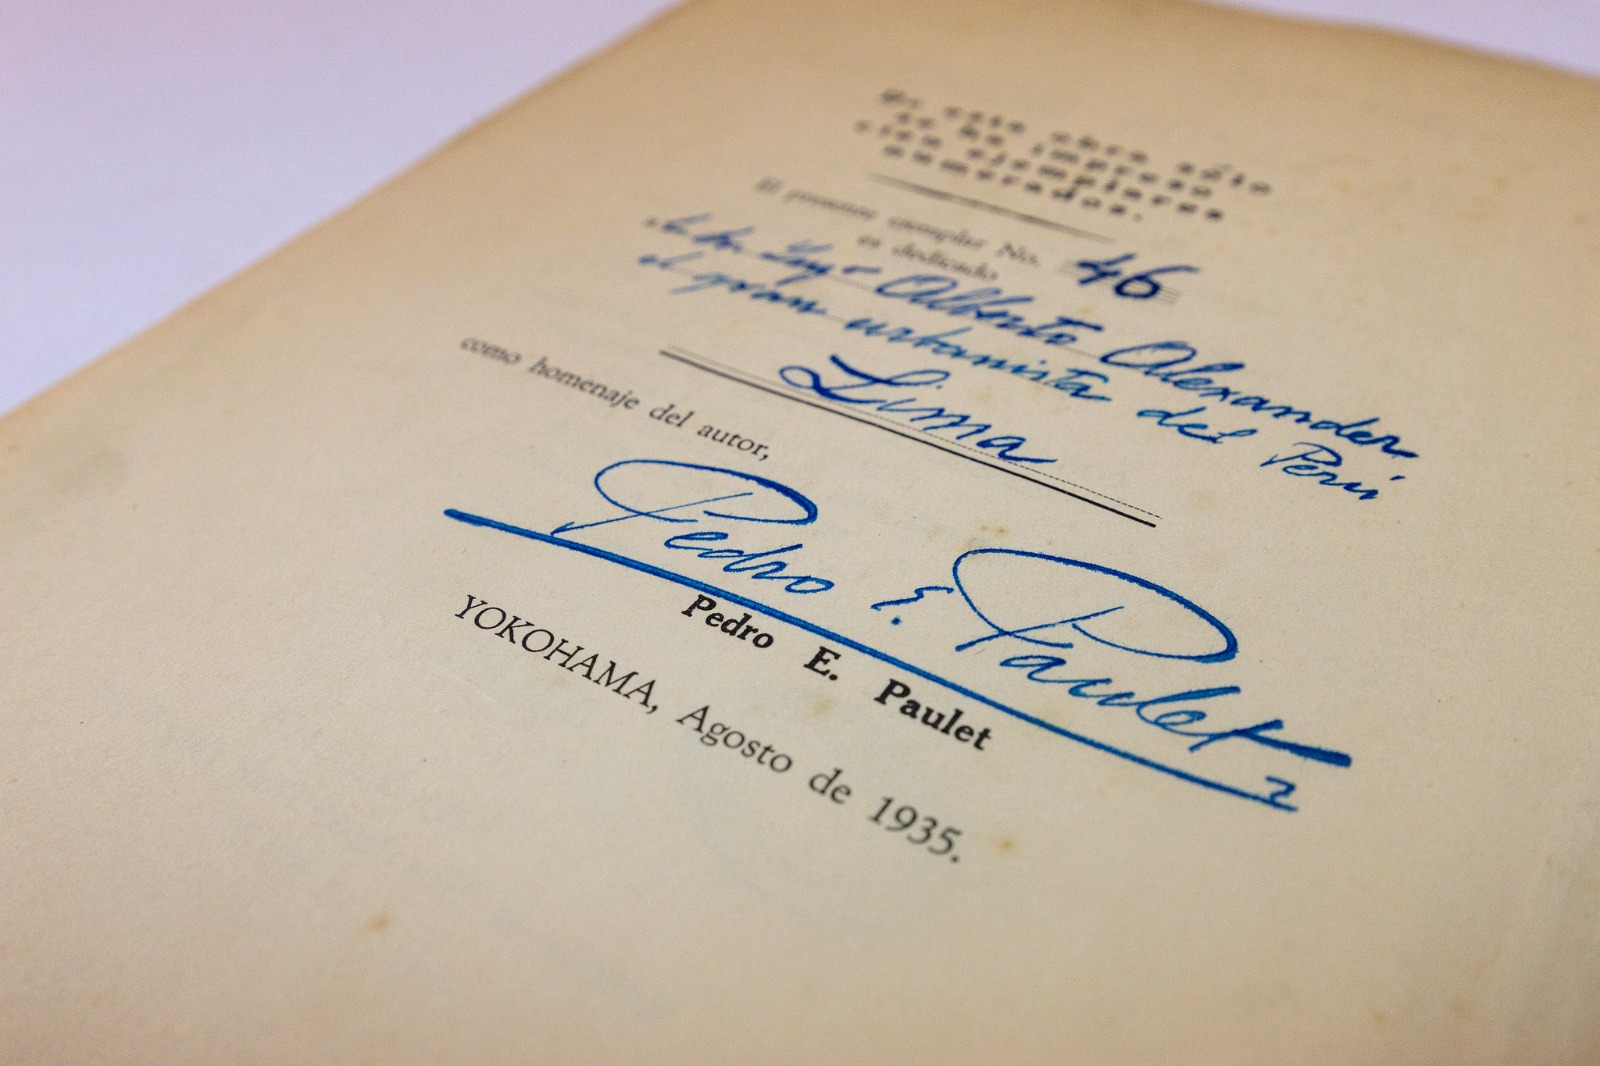 De esta obra sólo
se ha impreso
cien ejemplares
numerados.
El presente ejemplar No. 46
es dedicado
Alberto Alexander,
el gran urbanista del Perú
Lima
como homenaje del autor,
Pedro E. Paulet
Pedro E. Paulet
YOKOHAMA, Agosto de 1935.